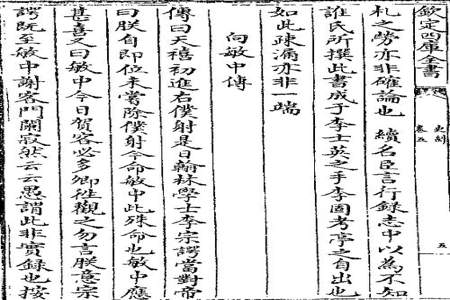 欽定四庫全書
史糾
卷五
五
札之勞亦非確論也 續名臣言行錄志中以為不知
誰氏所撰此書成于李士英之手李固考亭之自出也
如此疎漏亦非一端
向敏中傳
傳曰天禧初進右僕射是日翰林學士李宗諤當對帝
曰朕自即位未嘗除僕射今命敏中此殊命也敏中應
甚喜又曰敏中今日賀客必多卿往觀之勿言朕意宗
諤既至敏中謝客門闌寂然云云愚謂此非實錄也按